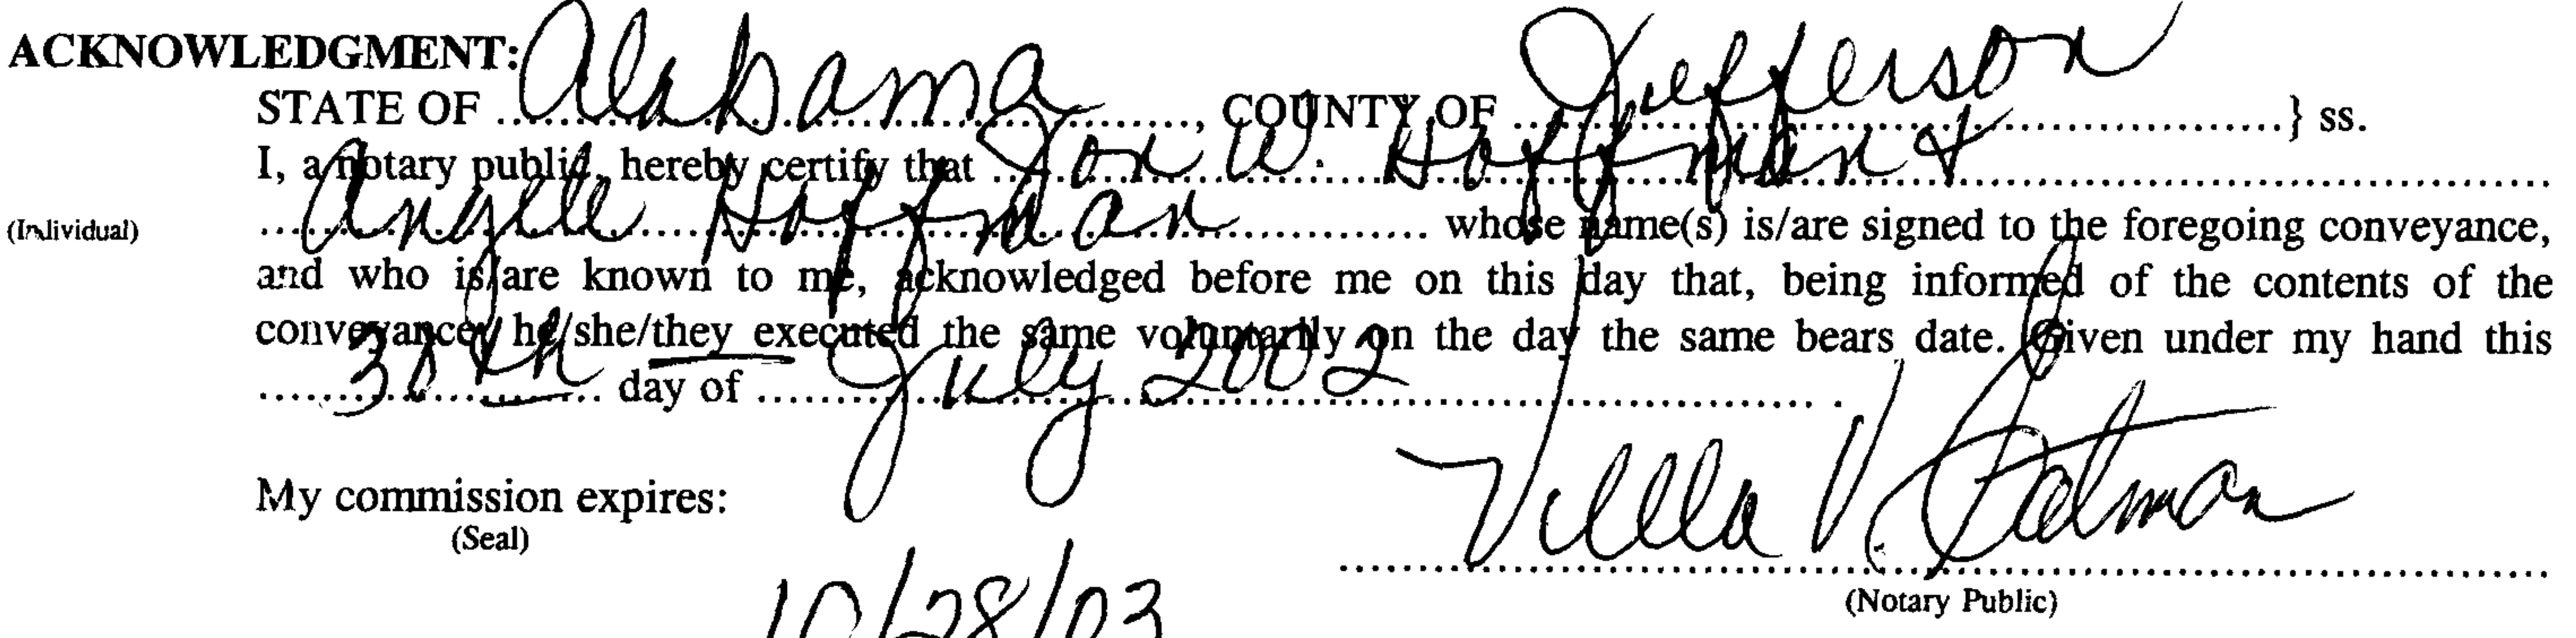 ACKNOWLEDGMENT:
STATE OF Alabama, COUNTY OF Jefferson } ss.
I, a notary public, hereby certify that Jon W. Hoffman &
(Individual) Angelle Hoffman whose name(s) is/are signed to the foregoing conveyance,
and who is/are known to me, acknowledged before me on this day that, being informed of the contents of the
conveyance, he/she/they executed the same voluntarily on the day the same bears date. Given under my hand this
30th day of July 2002
My commission expires:
(Seal)
V.
10/28/03
(Notary Public)